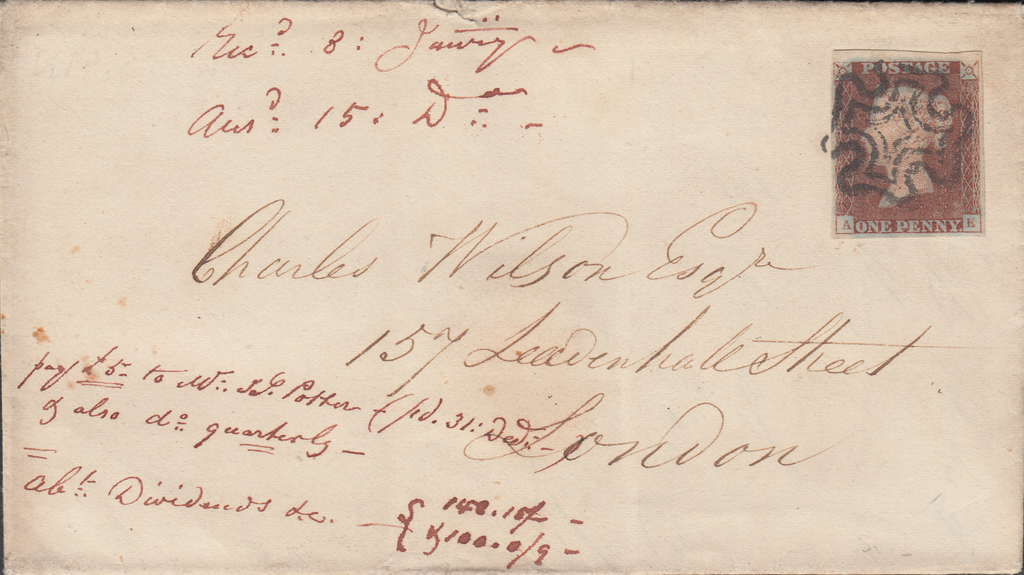 Rec.d 8: Janry
POSTAGE
Ans.d 15: Do
A ONE PENNY E
Charles Wilson Esqre
157 Leadenhall Street
London
pay £5- to Mr. J.G. Potter (pd. 31: Decr.
& also do. quarterly -
abt. Dividends &c. - { 148.10/-
& 100.0/9 -